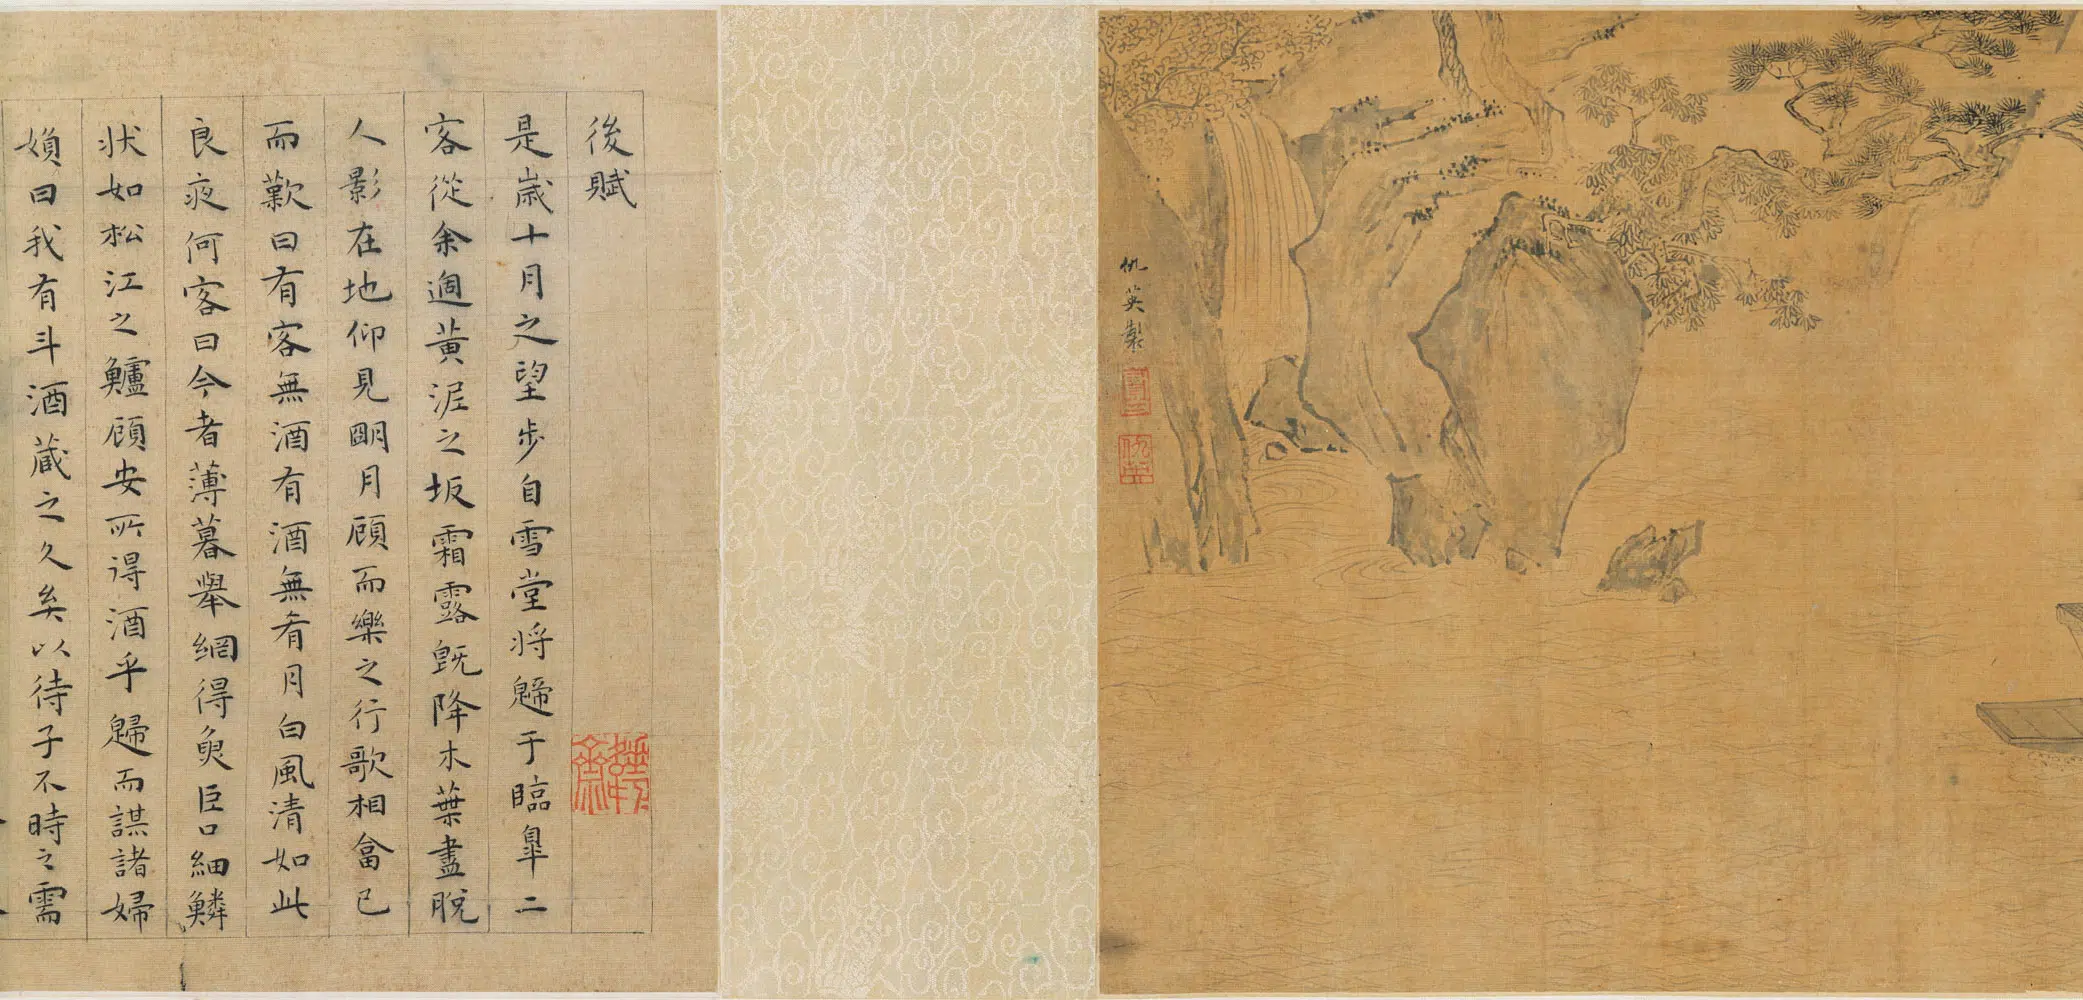 仇英製
實父
仇英
後賦
是歲十月之望步自雪堂將歸于臨皐二
客從余過黃泥之坂霜露既降木葉盡脫
人影在地仰見朙月顧而樂之行歌相畣已
而歎曰有客無酒有酒無肴月白風清如此
良夜何客曰今者薄暮舉網得魚巨口細鱗
狀如松江之鱸顧安所得酒乎歸而謀諸婦
媍曰我有斗酒蔵之久矣以待子不時之需